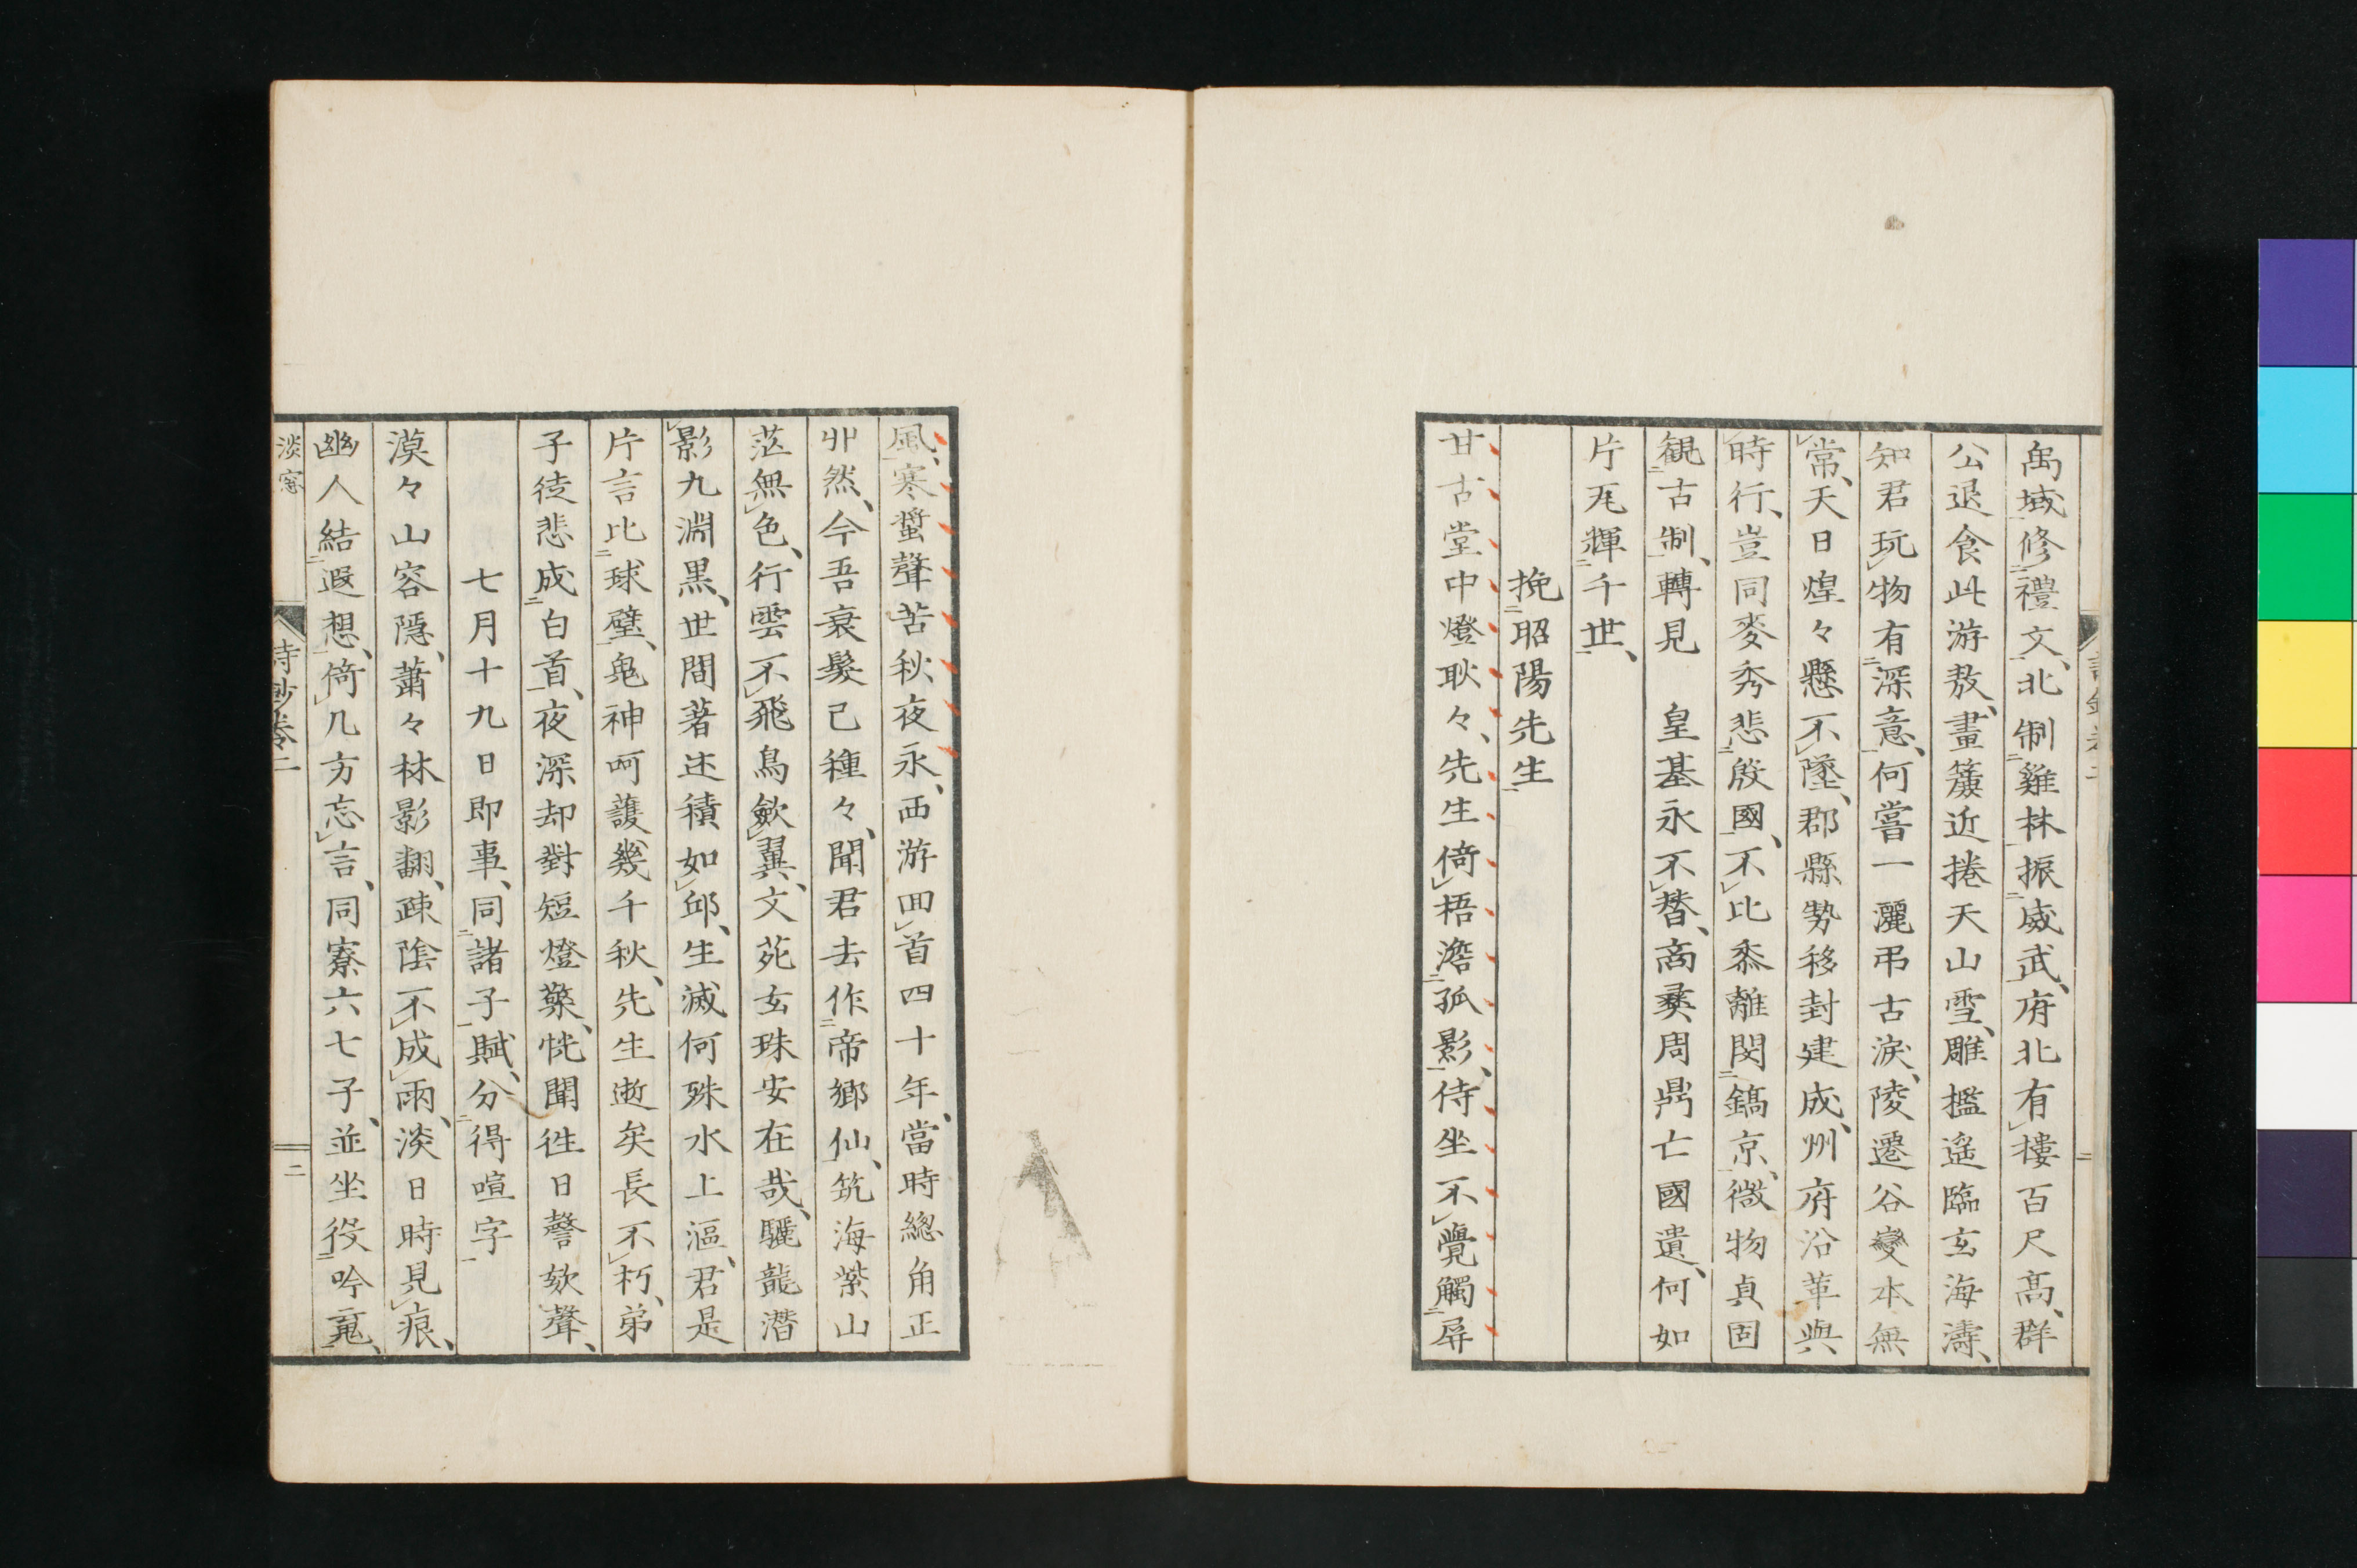 禹域修禮文、北制雞林振威武、府北有樓百尺高、群
公退食此游敖、畫簾近捲天山雪、雕檻遥臨玄海濤、
知君玩物有深意、何嘗一灑弔古淚、陵遷谷變本無
常、天日煌々懸不墜、郡縣勢移封建成、州府沿革與
時行、豈同麥秀悲殷國、不比黍離閔鎬京、微物貞固
観古制、轉見　皇基永不替、商彝周鼎亡國遺、何如
片瓦輝千世、
挽昭陽先生
甘古堂中燈耿々、先生倚梧澹孤影、侍坐不覺觸屏
風、寒螿聲苦秋夜永、西游回首四十年、當時總角正
丱然、今吾衰髮已種々、聞君去作帝鄉仙、筑海紫山
茫無色、行雲不飛鳥歛翼、文苑玄珠安在哉、驪龍潛
影九淵黑、世間著述積如邱、生滅何殊水上漚、君是
片言比球璧、鬼神呵護幾千秋、先生逝矣長不朽、弟
子徒悲成白首、夜深却對短燈檠、恍聞徃日謦欬聲、
七月十九日即事、同諸子賦、分得喧字
漠々山容隱、蕭々林影翻、疎陰不成雨、淡日時見痕、
幽人結遐想、倚几方忘言、同寮六七子、並坐役吟䰟、
淡窓
詩鈔卷二
二